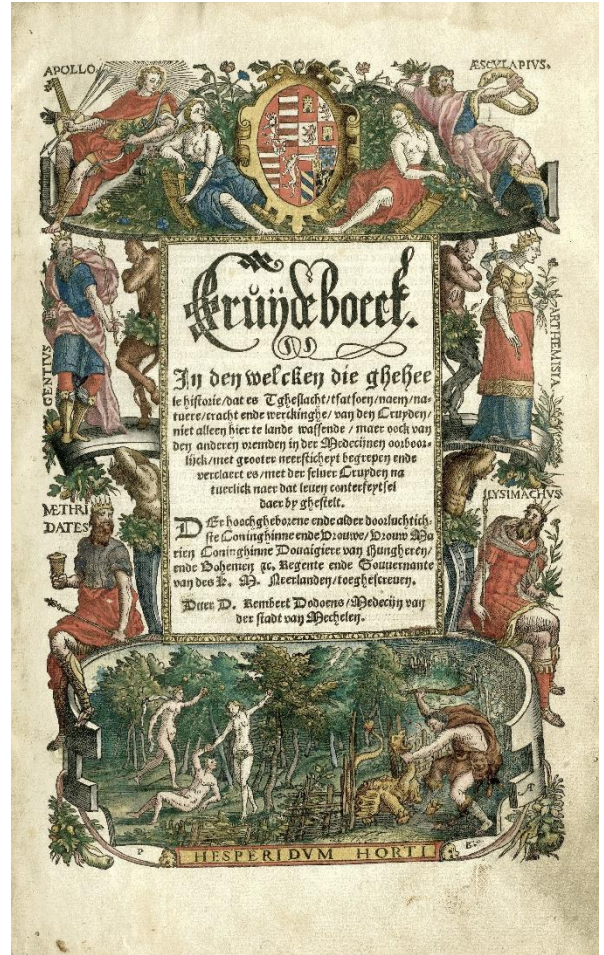 APOLLO
ÆSCVLAPIVS.
GENTIVS
ARTHEMISIA
METHRI
DATES
LYSIMACHVS
Cruÿdeboeck.
In den welcken die ghehee
le historie/dat es Tgheslacht/tfatsoen/naem/na-
tuere/cracht ende werckinghe/van den Cruyden/
niet alleen hier te lande wassende/maer oock van
den anderen vremden in der Medecijnen oorboor-
lijck/met grooter neersticheyt begrepen ende
verclaert es/met der seluer Cruyden na
tuerlick naer dat leuen conterfeytsel
daer by ghestelt.
DEr hoochgheborene ende alder doorluchtich-
ste Coninghinne ende Vrouwe/Vrouw Ma
rien Coninghinne Douaigiere van Hungheren/
ende Bohemen ꝛc. Regente ende Gouuernante
van des K. M. Neerlanden/toeghescreuen.
Duer D. Rembert Dodoens/Medecijn van
der stadt van Mechelen.
AP
P
B.
HESPERIDVM HORTI